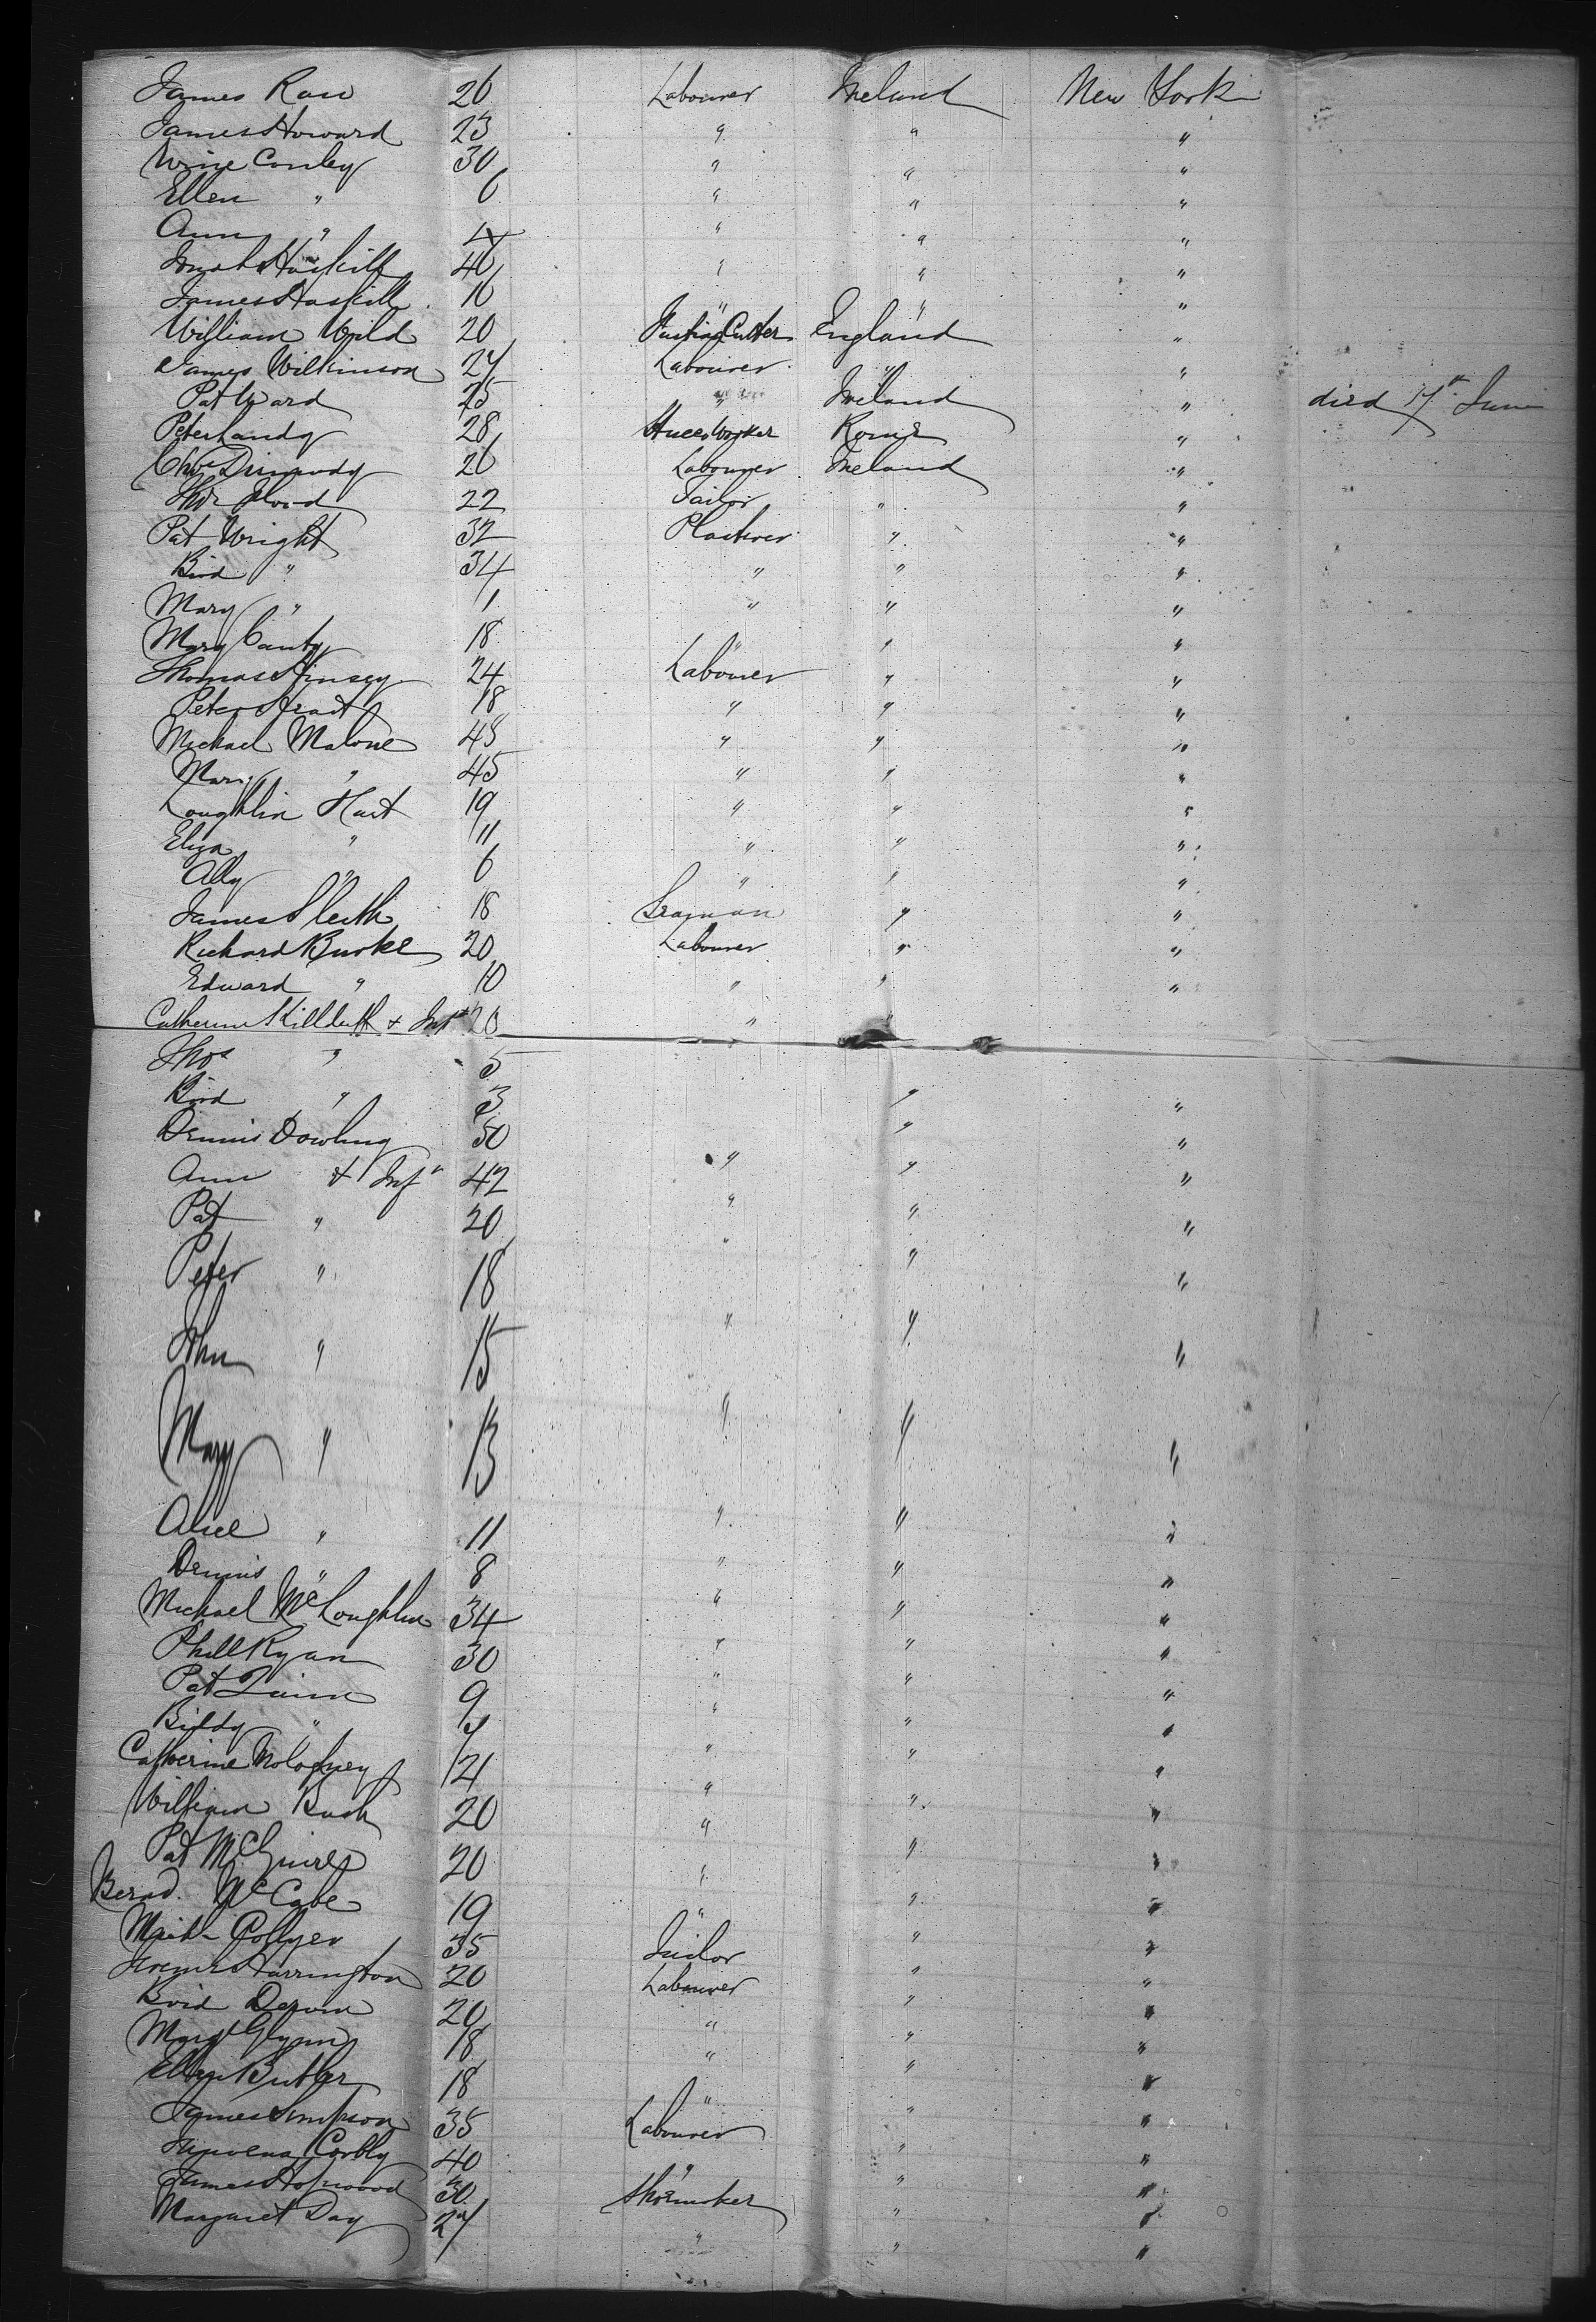 James Row 26 Labourer Ireland New York
James Howard 23 " " "
Wine Conley 30 " " "
Ellen " 6 " " "
Ann " 4 " " "
Haskill 40 " " "
James Haskill 10 " " "
William Wild 20 Cutter England "
James Wilkinson 27 Labourer " "
Pat Ward 25 " Ireland " died 17th June
Peter Landy 28 Stucco Worker Rome "
Dermody 26 Labourer Ireland "
Thos Flood 22 Tailor " "
Pat Wright 32 Plasterer " "
Bird " 34 " " "
Mary " 1 " " "
Mary Canty 18 " " "
Thomas Hinsey 24 Labourer " "
Peter 18 " " "
Michael Malone 48 " " "
Mary " 45 " " "
Loughlin Hart 19 " " "
Eliza " 11 " " "
Ally " 6 " " "
James Sleith 18 Seaman " "
Richard Burke 20 Labourer " "
Edward " 10 " " "
Catherine Killduff + Inft 20 "
Thos " 5
Bird " 3 " "
Dennis Dowling 50 " "
Ann + Inft 42 " " "
Pat " 20 " " "
Peter " 18 " " "
John " 15 " " "
Mary " 13 " " "
Alice " 11 " " "
Dennis " 8 " " "
Michael McLoughlin 34 " " "
Phill Ryan 30 " " "
Pat Quinn 9 " " "
Biddy " 7 " " "
Catherine Mologhney 21 " " "
William Bush 20 " " "
Pat McGuire 20 " " "
Bernd. McCabe 19 " " "
Collyer 35 Tailor " "
Harrington 20 Labourer " "
Bird 20 " " "
Margt Glynn 18 " " "
Ellen Butler 18 " " "
James Simpson 35 Labourer " "
Corbly 40 " " "
James Hopwood 30 Shoemaker " "
Margaret Day 27 " " "